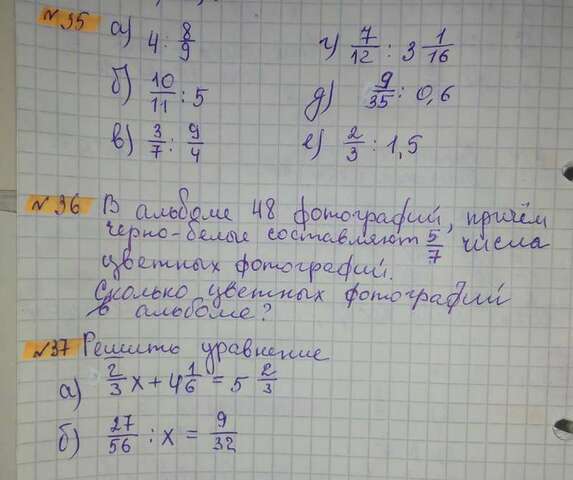 №35 а) 4 : 8/9 г) 7/12 : 3 1/16
б) 10/11 : 5 д) 9/35 : 0,6
в) 3/7 : 9/4 е) 2/3 : 1,5
№36 В альбоме 48 фотографий, причём
черно-белые составляют 5/7 числа
цветных фотографий.
Сколько цветных фотографий
в альбоме?
№37 Решить уравнение
а) 2/3 x + 4 1/6 = 5 2/3
б) 27/56 : x = 9/32